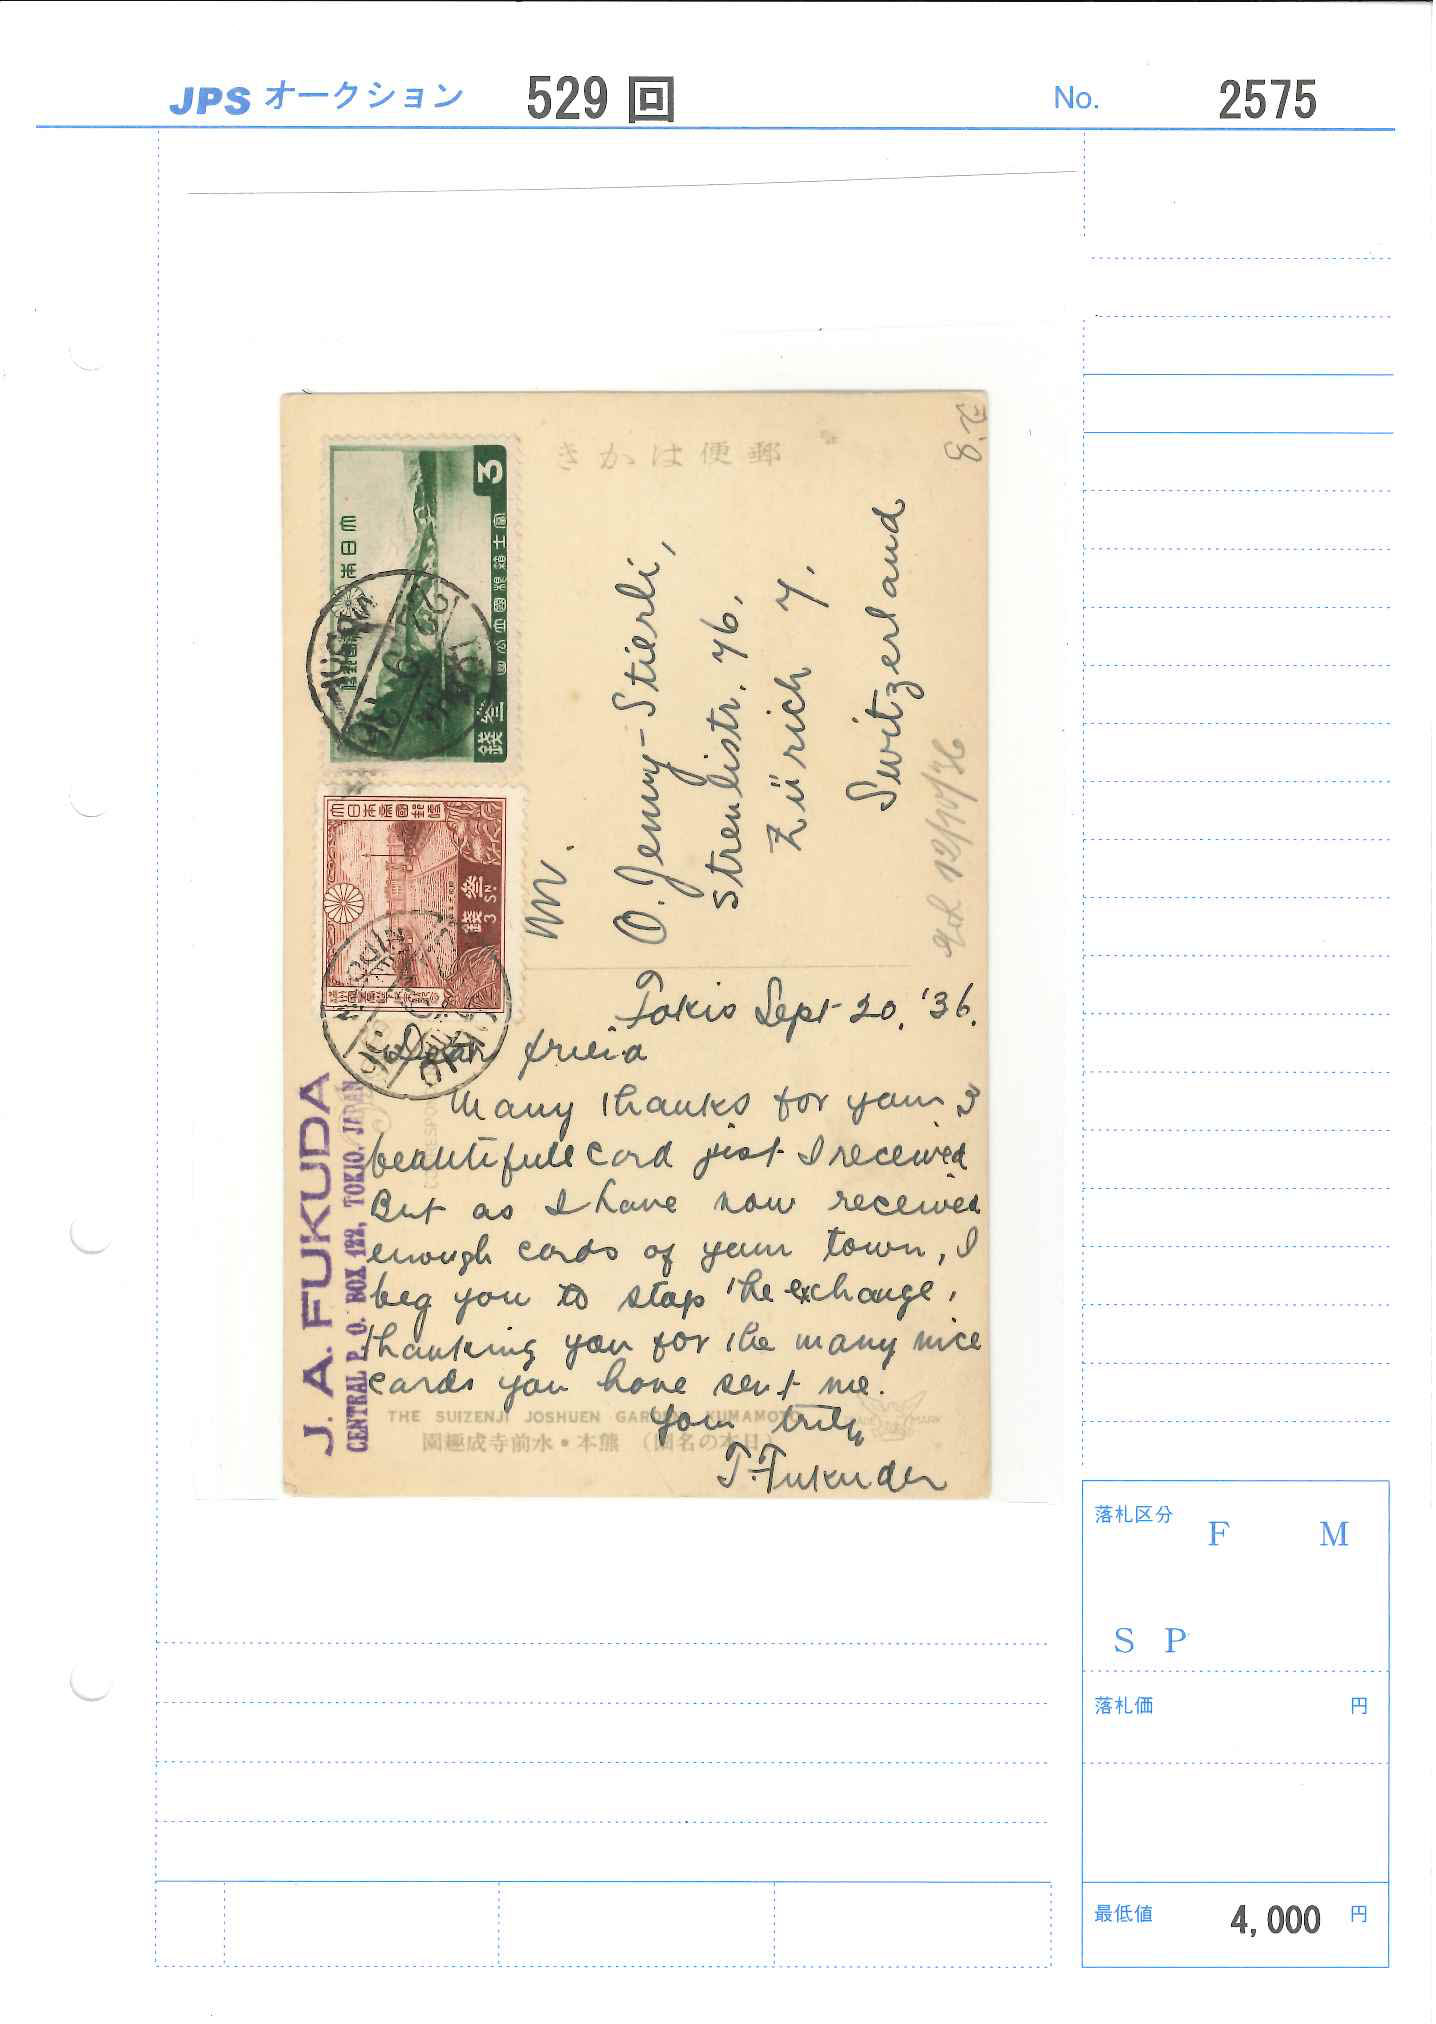 JPS オークション 529 回 No. 2575
郵便はかき
8.-
3
大日本
富士箱根國立公園
叁錢
大日本帝國郵便
叁錢
3 SN.
NIPPON
M.
O. Jenny-Stierli,
Streulistr. 76.
Zürich 7.
Switzerland
12/10/36
J. A. FUKUDA
CENTRAL P. O. BOX 122, TOKIO, JAPAN
Tokio Sept 20. '36.
Dear friend
Many thanks for your 3
beautifull card just I received
But as I have now received
enough cards of your town, I
beg you to stop the exchange,
thanking you for the many nice
cards you have sent me.
Your truly
T. Fukuda
THE SUIZENJI JOSHUEN GARDEN KUMAMOTO
(日本の名園)熊本・水前寺成趣園
MARK
落札区分 F M
S P
落札価 円
最低値 4,000 円